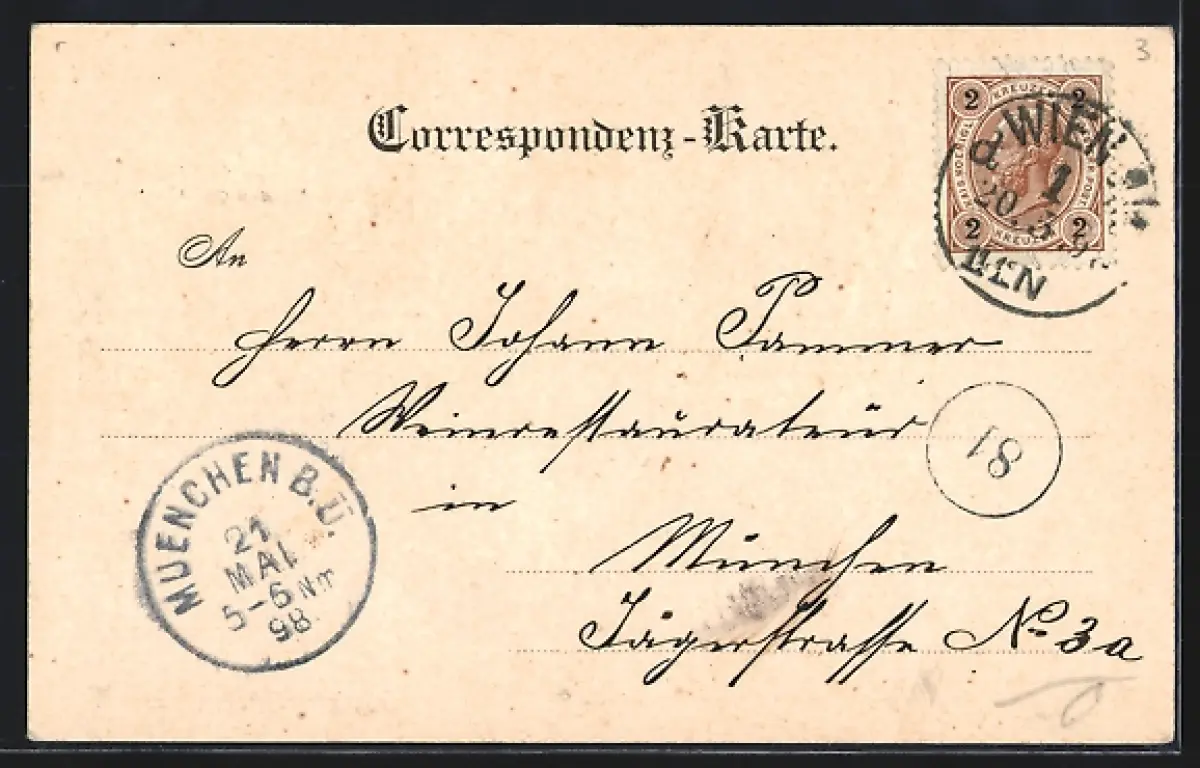 3
Correspondenz-Karte.
2 KREUZER 2
2 KREUZER 2
WIEN
1
20. 5.
An
Herrn Johann Pammer
Weinrestaurateur
in
München
Jägerstrasse No 3a
81
MUENCHEN B.Ü.
21
MAI
5-6 Nm
98